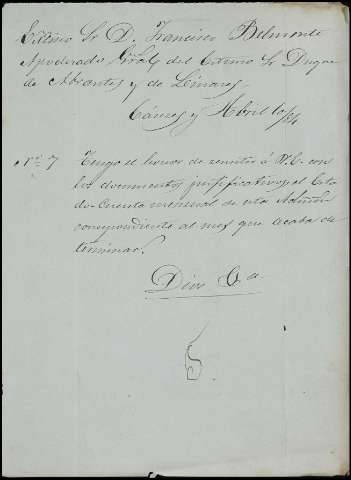 Exmo Sr D. Francisco Belmonte
Apoderado Gral del Exmo Sr Duque
de Abrantes y de Linares
Cáceres y Abril 1º/84
Nº 7 Tengo el honor de remitir á V.E. con
los documentos justificativos el Esta
do-Cuenta mensual de esta Admon
correspondiente al mes que acaba de
terminar.
Dios &a